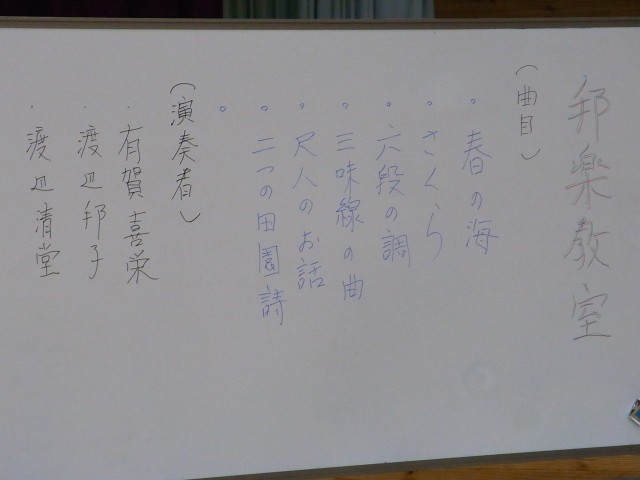 邦楽教室
（曲目）
。春の海
。さくら
。六段の調
。三味線の曲
。尺八のお話
。二つの田園詩
。
（演奏者）
・有賀喜栄
・渡辺邦子
・渡辺清堂